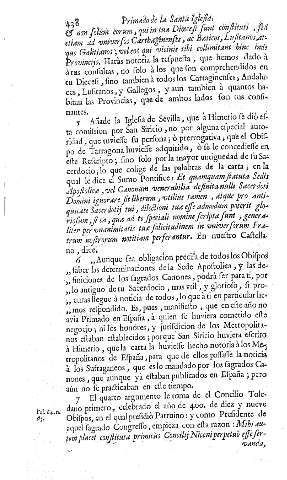 438 Primado de la Santa Iglesia,
& non solum eorum, qui in tua Diœcesi sunt constituti, sed
etiam ad universos Carthaginenses, ac Bœticos, Lusitanos, at-
que Gallicios, vel eos qui vicinis tibi collimitant hinc inde
Provincijs. Harás notoria la respuesta, que hemos dado à
tus consultas, no solo à los que son comprehendidos en
tu Diocesi, sino tambien à todos los Cartaginenses, Andalu-
ces, Lusitanos, y Gallegos, y aun tambien à quantos ha-
bitan las Provincias, que de ambos lados son tus confi-
nantes.
5 Añade la Iglesia de Sevilla, que à Himerio se diò es-
ta comision por San Siricio, no por alguna especial auto-
ridad, que tuviesse su persona, ò prerrogativa, que el Obis-
po de Tarragona huviesse adquirido, ò se le concediesse en
este Rescripto; sino solo por la mayor antiguedad de su Sa-
cerdocio, lo que colige de las palabras de la carta, en la
qual le dice el Sumo Pontifice: Et quamquam statuta Sedis
Apostolicæ, vel Canonum venerabilia definita nulli Sacerdos
Domini ignorare sit liberum, utilius tamen, atque pro anti-
quitate Sacerdotij tui, dilectioni tuæ esse admodum poterit glo-
riosum, si ea, quæ ad te speciali nomine scripta sunt, genera-
liter per unanimitatis tuæ solicitudinem in universorum Fra-
trum nostrorum notitiam perferantur. En nuestro Castella-
no, dice.
6 „Aunque sea obligacion precisa de todos los Obispos
„saber las determinaciones de la Sede Apostolica, y las de-
„finiciones de los sagrados Canones, podrá ser para ti, por
„lo antiguo de tu Sacerdocio, mas util, y glorioso, si pro-
„curas llegue à noticia de todos, lo que à ti en particular he-
„mos respondido. Es, pues, manifiesto, que en este año no
avia Primado en España, à quien se huviera cometido este
negocio; ni los honores, y jurisdicion de los Metropolita-
nos estaban establecidos; porque San Siricio huviera escrito
à Himerio, que la carta la huviesse hecho notoria à los Me-
tropolitanos de España, para que de ellos passasse la noticia
à los Sufraganeos, que es lo mandado por los sagrados Ca-
nones, que aunque yà estaban publicados en España; pero
aùn no se practicaban en este tiempo.
7 El quarto argumento le toma de el Concilio Tole-
dano primero, celebrado el año de 400. de diez y nueve
Obispos, en el qual presidiò Patruino; y como Presidente de
aquel sagrado Congresso, empieza con esta razon: Mihi au-
tem placet constituta primitus Concilij Niceni perpetuò esse ser-
vanda,